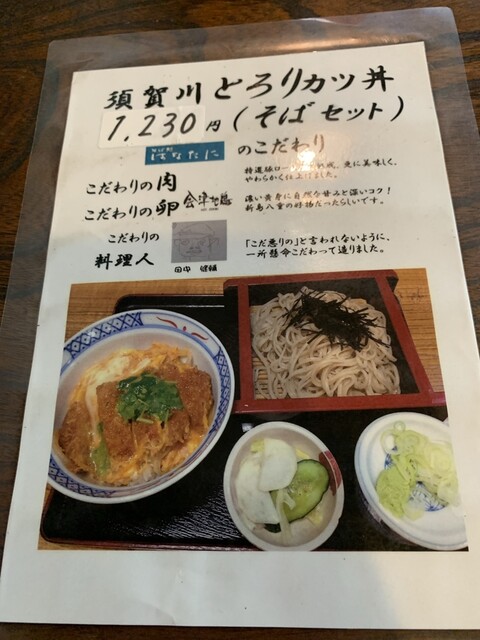 須賀川とろりカツ丼
1,230円(そばセット)
はなたに のこだわり
こだわりの肉
やわらかく仕上げました。
こだわりの卵 会津地鶏
濃い黄身に自然な甘みと深いコク！
新島八重の好物だったらしいです。
こだわりの
料理人
田中
「こだ悪りの」と言われないように、
一所懸命こだわって造りました。